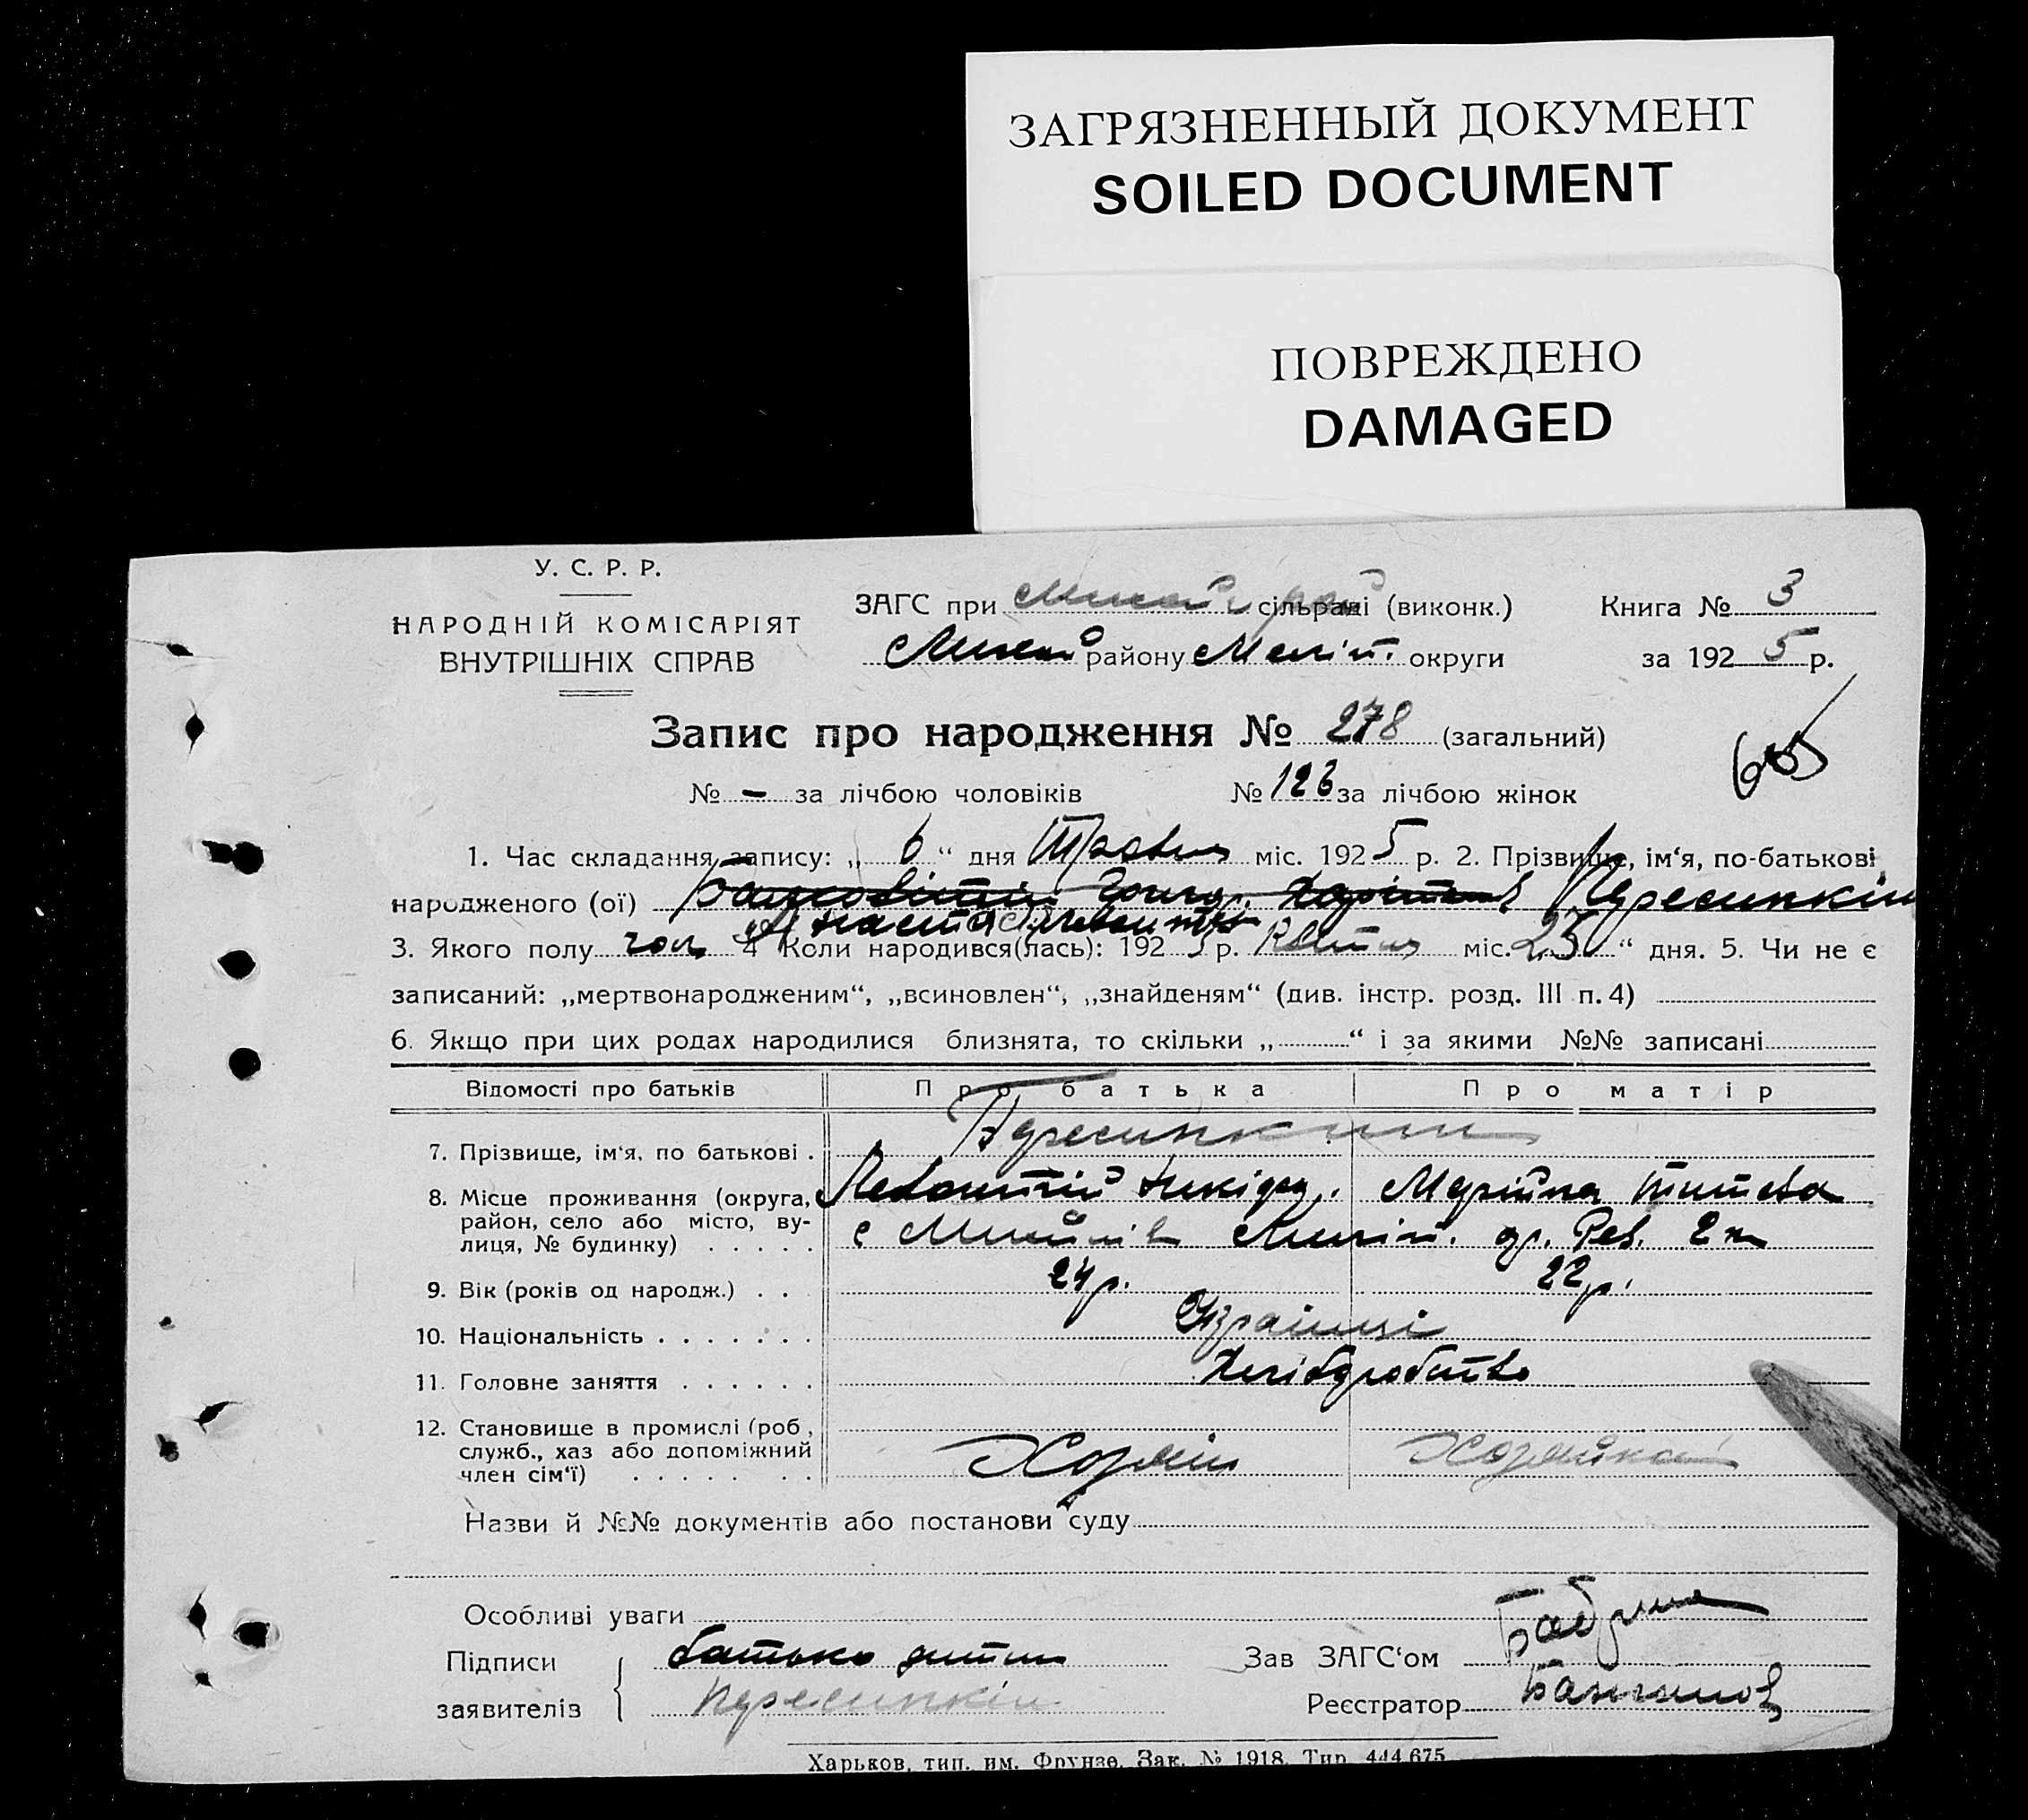 ЗАГРЯЗНЕННЫЙ ДОКУМЕНТ
SOILED DOCUMENT
ПОВРЕЖДЕНО
DAMAGED
У. С. Р. Р.
НАРОДНІЙ КОМІСАРІЯТ
ВНУТРІШНІХ СПРАВ
ЗАГС при сільраді (виконк.)
району Меліт. округи
Книга № 3
за 1925 р.
Запис про народження № 278 (загальний)
№ - за лічбою чоловіків № 126 за лічбою жінок
605
1. Час складання запису: „ 6 “ дня Травня міс. 1925 р. 2. Прізвище, ім‘я, по-батькові
народженого (ої) Пересипкін
Анастасія Левонтієв
3. Якого полу чол 4 Коли народився(лась): 1925 р. Квітня міс. 25 “ дня. 5. Чи не є
записаний: „мертвонародженим“, „всиновлен“, „знайденям“ (див. інстр. розд. III п. 4)
6. Якщо при цих родах народилися близнята, то скільки „ “ і за якими №№ записані
Відомості про батьків Про батька Про матір
7. Прізвище, ім‘я, по батькові . Пересипкини
8. Місце проживання (округа, Левонтій Никіфор. Марійка Титова
район, село або місто, ву-
лиця, № будинку) . . . . . с Меліт. 2
9. Вік (років од народж.) . . 24 р. 22 р.
10. Національність . . . . . . . Українці
11. Головне заняття . . . . . . Хліборобство
12. Становище в промислі (роб,
служб., хаз або допоміжний
член сім‘ї) . . . . . . . Хозяїн Хозяйка
Назви й №№ документів або постанови суду
Особливі уваги
Підписи батько дитини Зав ЗАГС‘ом
заявителів Пересипкін Реєстратор
Харьков, тип. им. Фрунзе. Зак. № 1918. Тир. 444.675